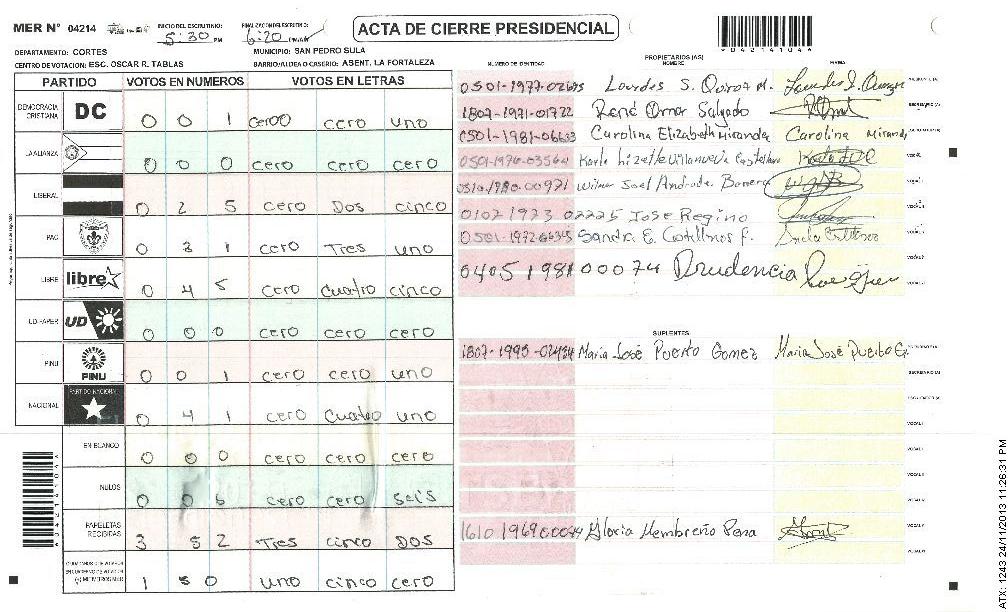 MER N° 04214
INICIO DEL ESCRUTINIO: 5:30 PM
FINALIZACION DEL ESCRUTINIO: 6:20
ACTA DE CIERRE PRESIDENCIAL
DEPARTAMENTO: CORTES
MUNICIPIO: SAN PEDRO SULA
CENTRO DE VOTACION: ESC. OSCAR R. TABLAS
BARRIO/ALDEA O CASERIO: ASENT. LA FORTALEZA
PARTIDO VOTOS EN NUMEROS VOTOS EN LETRAS
DEMOCRACIA CRISTIANA DC 0 0 1 cero cero uno
LA ALIANZA 0 0 0 cero cero cero
LIBERAL 0 2 5 cero Dos cinco
PAC 0 3 1 cero Tres uno
LIBRE libre 0 4 5 cero cuatro cinco
UD-FAPER UD 0 0 0 cero cero cero
PINU PINU 0 0 1 cero cero uno
NACIONAL PARTIDO NACIONAL 0 4 1 cero cuatro uno
EN BLANCO 0 0 0 cero cero cero
NULOS 0 0 6 cero cero seis
PAPELETAS RECIBIDAS 3 5 2 Tres cinco Dos
1 5 0 uno cinco cero
PROPIETARIOS (AS)
NUMERO DE IDENTIDAD NOMBRE FIRMA
Lourdes S. Quiroz M.
1807-1971-01722 René Omar Salgado
0501-1981-06633 Carolina Elizabeth Miranda Carolina Miranda
0501-1976-03564 Karla Lizette Villanueva
0510-1980-00971 Wilmer Joel Andrade
0107 1973 02225 Jose Regino
Sandra E. Castellanos P.
0405 1981 00074 Prudencia
SUPLENTES
Maria José Puerto Gomez Maria José Puerto
Gloria Membreño Pena
ATX: 1243 24/11/2013 11:26:31 PM